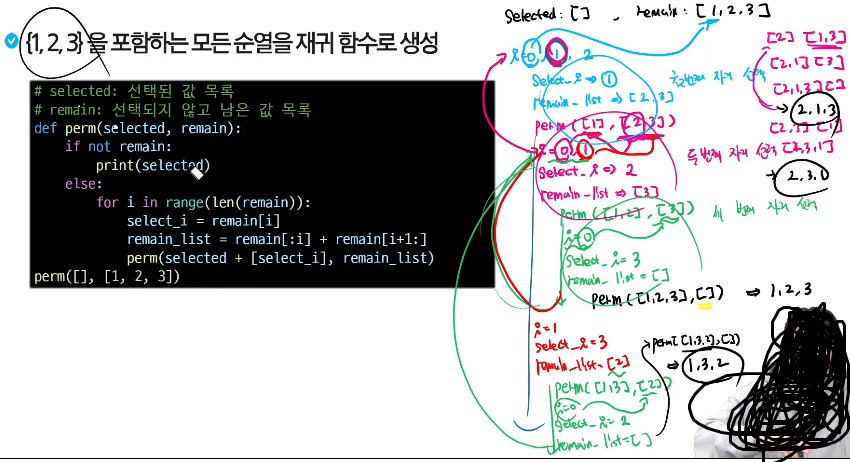 {1, 2, 3} 을 포함하는 모든 순열을 재귀 함수로 생성
# selected: 선택된 값 목록
# remain: 선택되지 않고 남은 값 목록
def perm(selected, remain):
if not remain:
print(selected)
else:
for i in range(len(remain)):
select_i = remain[i]
remain_list = remain[:i] + remain[i+1:]
perm(selected + [select_i], remain_list)
perm([], [1, 2, 3])
Selected: [] , remain: [1, 2, 3]
i=0, 1, 2
Select_i ⇒ 1
remain_list ⇒ [2,3]
perm([1], [2,3])
i=0, 1
Select_i ⇒ 2
remain_list ⇒ [3]
perm([1,2], [3])
i=0
Select_i = 3
remain_list = []
perm([1,2,3], []) ⇒ 1, 2, 3
i=1
select_i=3
remain_list=[2]
perm([1,3], [2])
i=0
select_i=2
remain_list=[]
perm([1,3,2],[])
⇒ 1,3,2
[2] [1,3]
[2,1] [3]
[2,1,3] []
2,1,3
[2,3] [1]
[2,3,1]
→ 2,3,0
두번째 재귀
세 번째 재귀